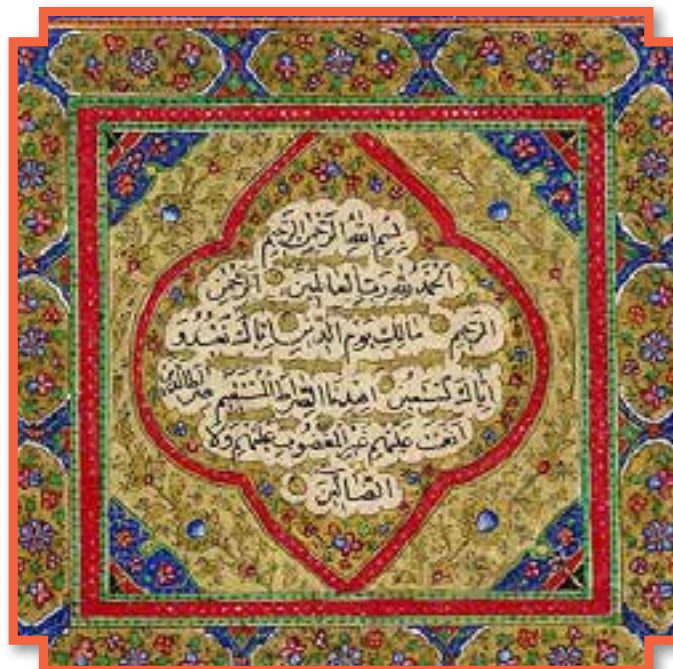 بِسْمِ اللهِ الرَّحْمٰنِ الرَّحِيمِ
اَلْحَمْدُ لِلّٰهِ رَبِّ الْعَالَمِينَ اَلرَّحْمٰنِ
الرَّحِيمِ مَالِكِ يَوْمِ الدِّينِ اِيَّاكَ نَعْبُدُ وَ
اِيَّاكَ نَسْتَعِينُ اِهْدِنَا الصِّرَاطَ الْمُسْتَقِيمَ صِرَاطَ الَّذِينَ
اَنْعَمْتَ عَلَيْهِمْ غَيْرِ الْمَغْضُوبِ عَلَيْهِمْ وَلَا
الضَّالِّينَ